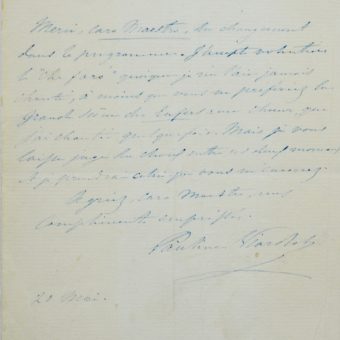 Merci, caro Maestro, du changement
dans le programme. J'accepte volontiers
le "Che farò" quoique je ne l'aie jamais
chanté, à moins que vous ne préfériez la
grande scène des Enfers avec chœur, que
j'ai chantée quelquefois. Mais je vous
laisse juge du choix entre ces deux morceaux
et je prendrai celui que vous
Agréez, caro Maestro, mes
compliments empressés.
Pauline Viardot
20 Mai.